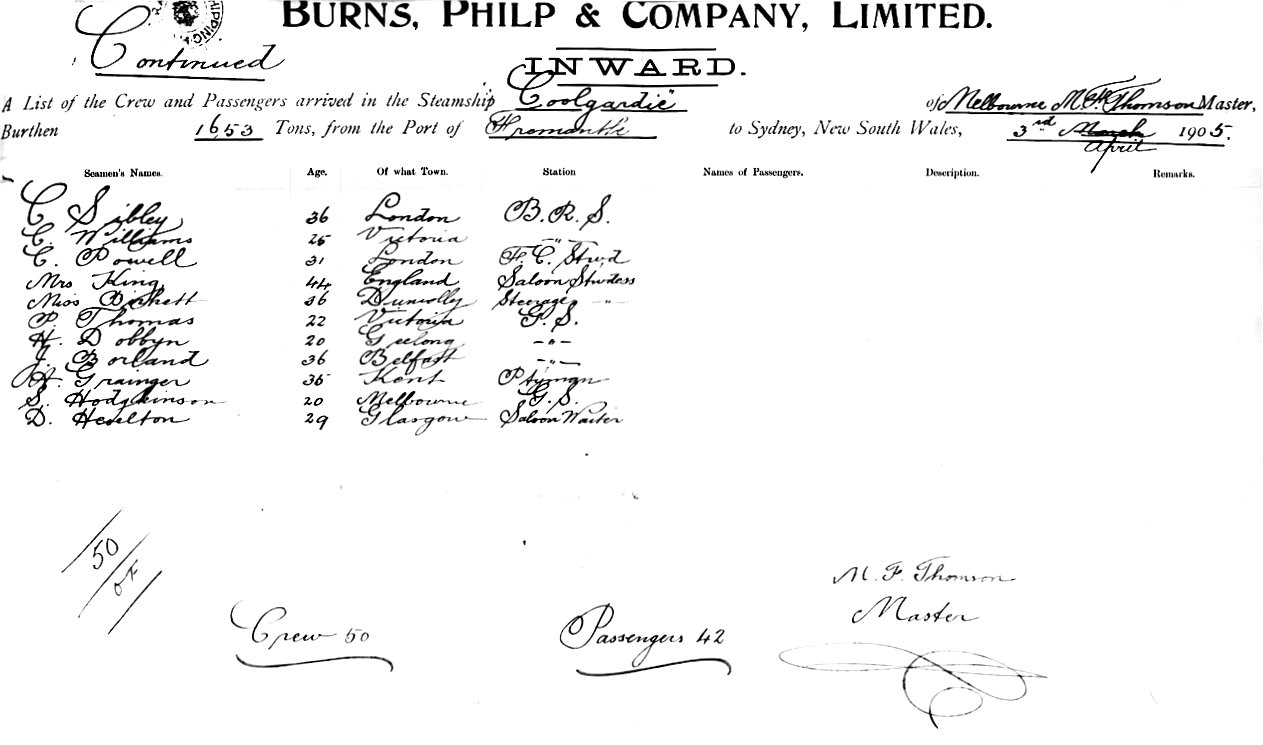 BURNS, PHILP & COMPANY, LIMITED.
Continued
INWARD.
A List of the Crew and Passengers arrived in the Steamship "Coolgardie" of Melbourne M. F. Thomson Master,
Burthen 1653 Tons, from the Port of Fremantle to Sydney, New South Wales, 3rd March 1905.
April
Seamen's Names. Age. Of what Town. Station Names of Passengers. Description. Remarks.
C Sibley 36 London B. R. S.
C. Williams 25 Victoria -"-
C. Powell 31 London F. C. Stwd
Mrs King 44 England Saloon Stwdess
Miss 36 Dunolly Steerage -"-
P. Thomas 22 Victoria G. S.
H. Dobbyn 20 Geelong -"-
J. Borland 36 Belfast -"-
H. Grainger 35 Kent Ptyman
S. Hodgkinson 20 Melbourne G. S.
D. Heselton 29 Glasgow Saloon Waiter
50
Crew 50
Passengers 42
M. F. Thomson
Master